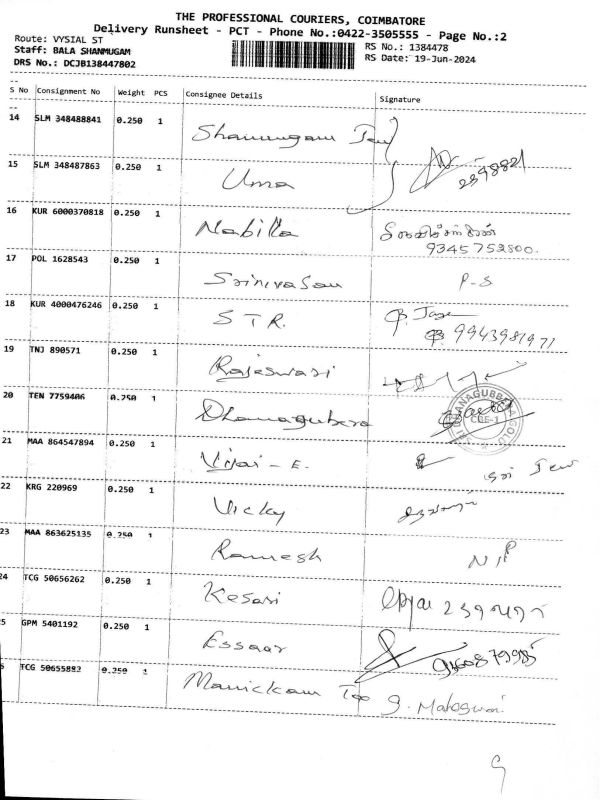 THE PROFESSIONAL COURIERS, COIMBATORE
Delivery Runsheet - PCT - Phone No.:0422-3505555 - Page No.:2
Route: VYSIAL ST RS No.: 1384478
Staff: BALA SHANMUGAM RS Date: 19-Jun-2024
DRS No.: DCJB138447802
S No Consignment No Weight PCS Consignee Details Signature
14 SLM 348488841 0.250 1 Shanmugam
15 SLM 348487863 0.250 1 Uma
16 KUR 6000370818 0.250 1 Nabilla
9345752800.
17 POL 1628543 0.250 1 Srinivasan P-S
18 KUR 4000476246 0.250 1 STR.
9943981971
19 TNJ 890571 0.250 1 Rajeswari
20 TEN 7759406 0.250 1 Dhanagubera
CBE-1
21 MAA 864547894 0.250 1 Vijai - E.
22 KRG 220969 0.250 1 Vicky
23 MAA 863625135 0.250 1 Ramesh
24 TCG 50656262 0.250 1 Kesari
25 GPM 5401192 0.250 1 Essaar
TCG 50655882 0.250 1 Manickam